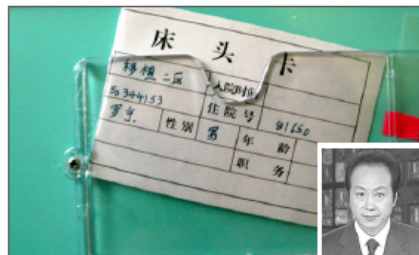 床头卡
移植二区 入院时间
50344153 住院号 81650
罗宇 性别 男 年龄
职务